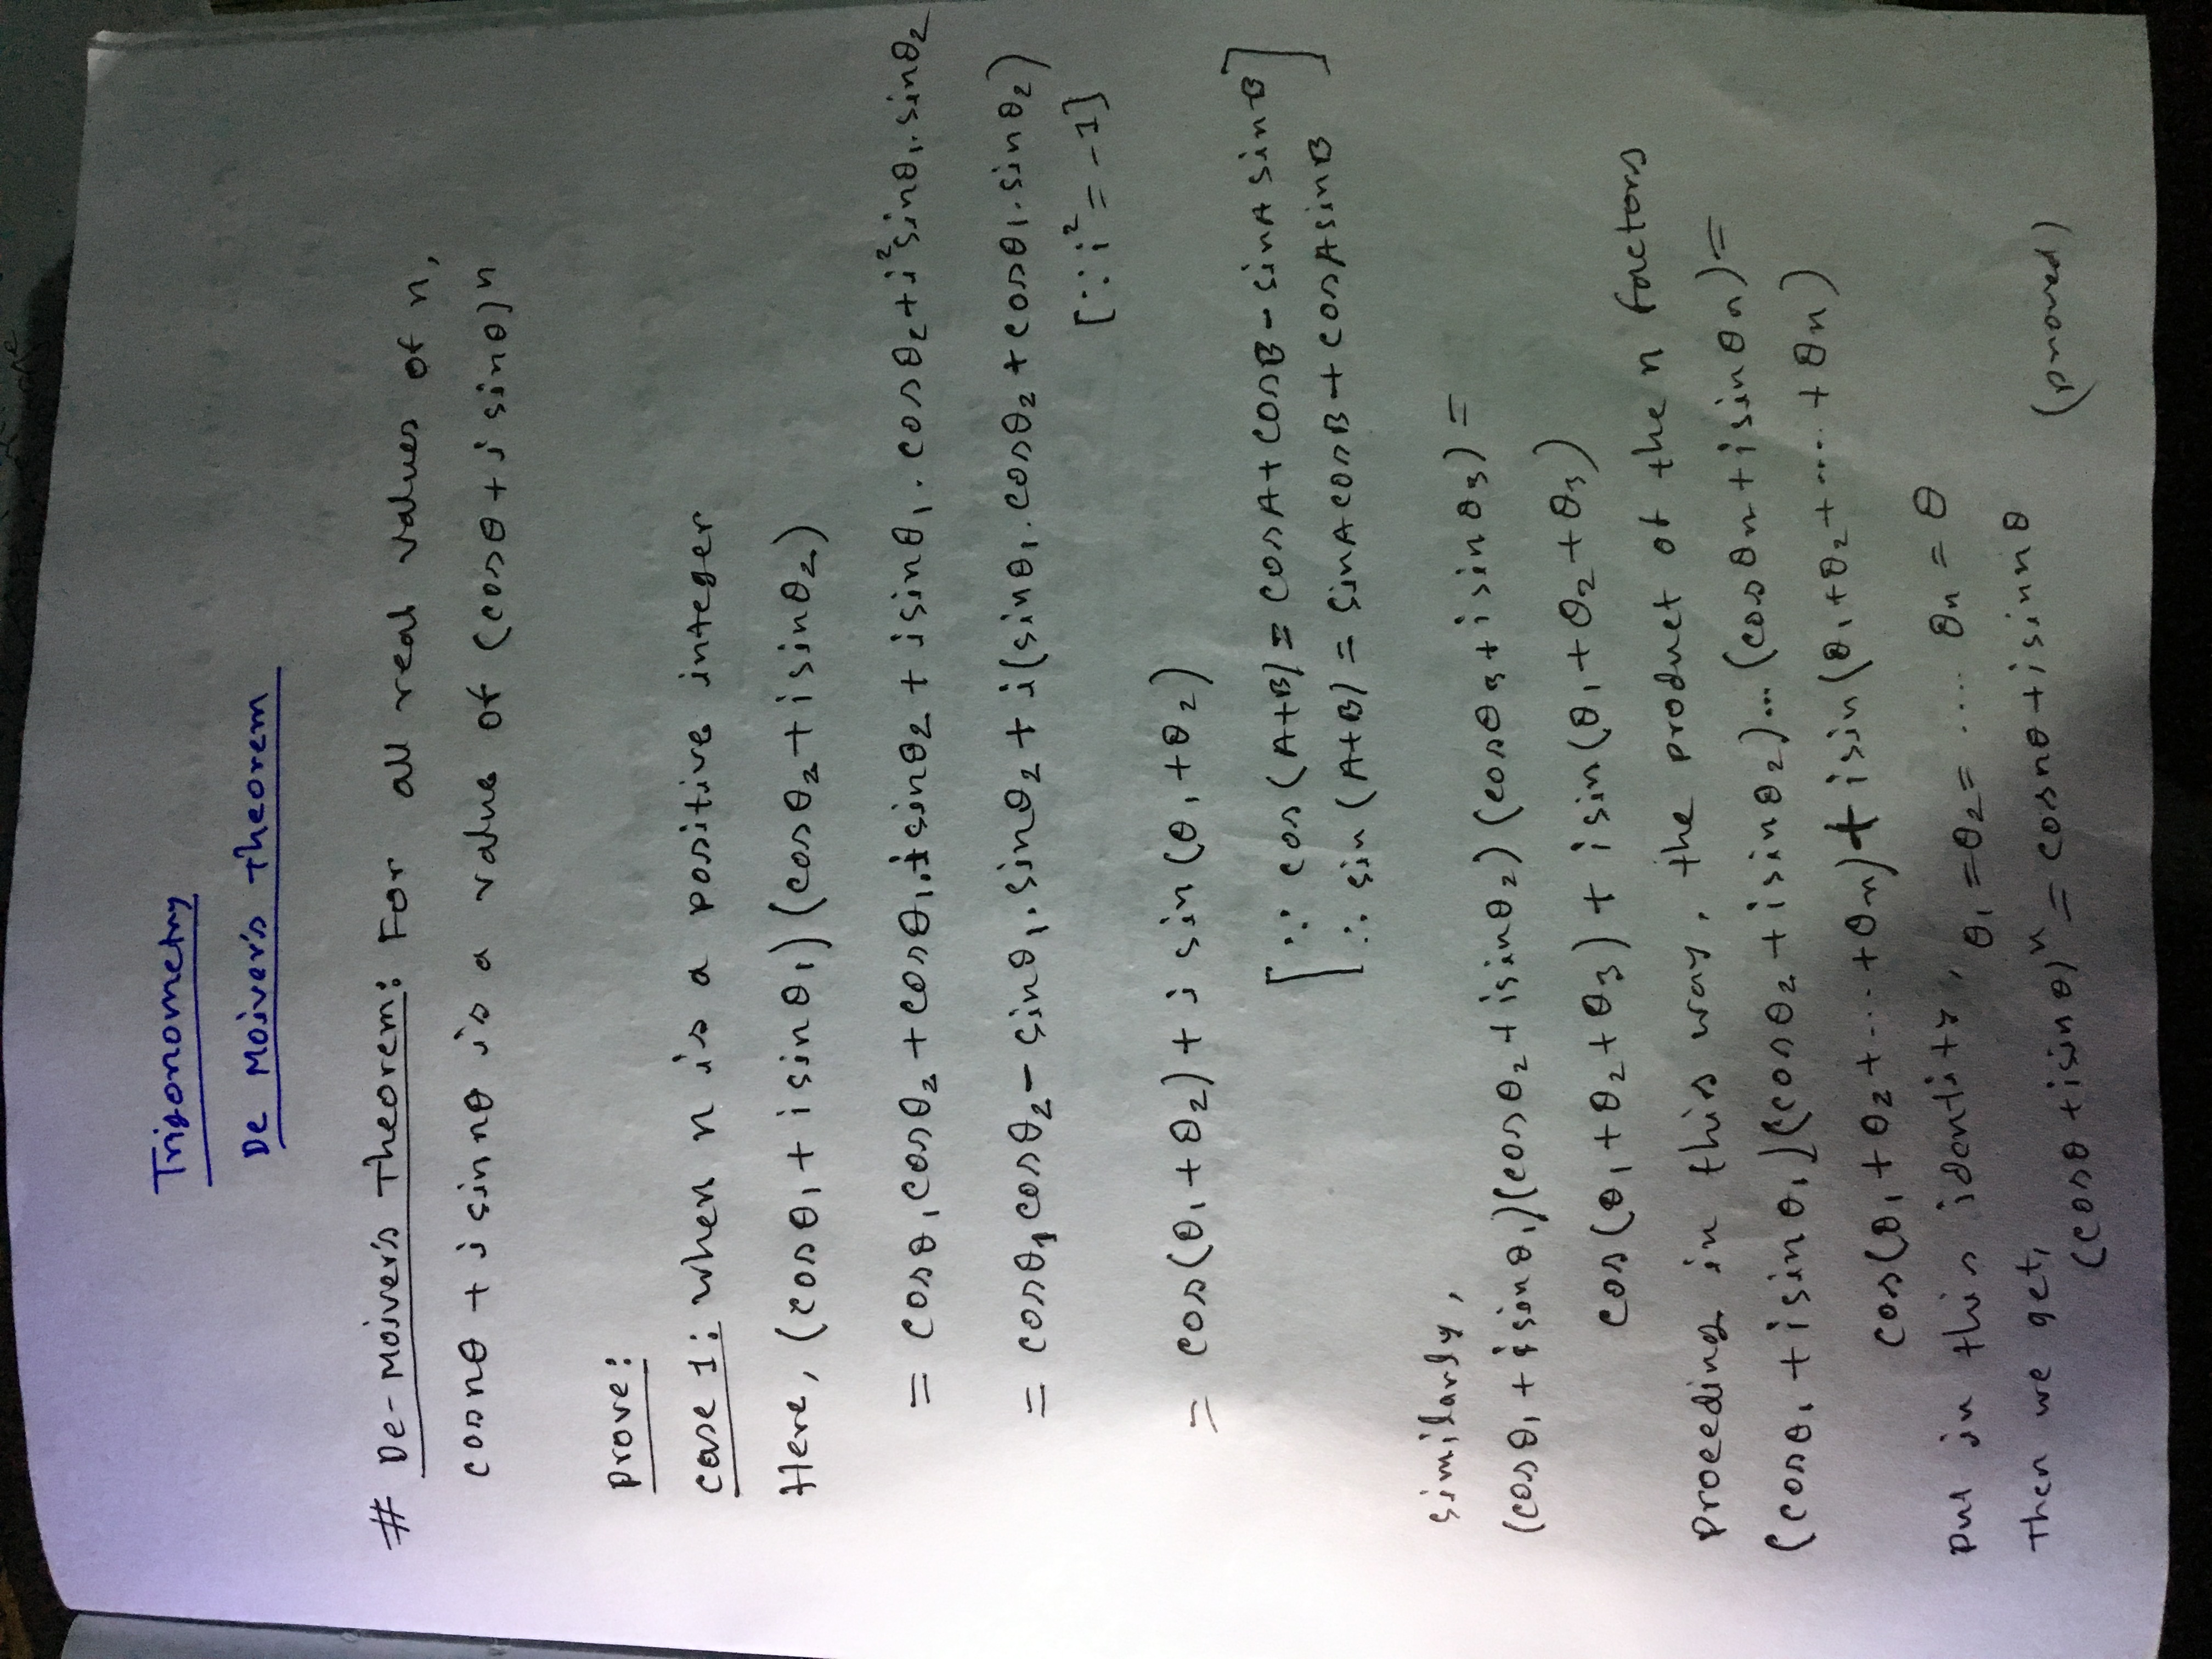 Trigonometry
De Moiver's Theorem
# De-Moiver's Theorem: For all real values of n,
cosnθ + i sin nθ is a value of (cosθ + i sinθ)ⁿ
Prove:
case 1: when n is a positive integer
Here, (cosθ₁ + i sinθ₁) (cosθ₂ + i sinθ₂)
= cosθ₁ cosθ₂ + cosθ₁. i sinθ₂ + i sinθ₁ . cosθ₂ + i² sinθ₁. sinθ₂
= cosθ₁ cosθ₂ - sinθ₁. sinθ₂ + i(sinθ₁. cosθ₂ + cosθ₁. sinθ₂)
[∵ i² = -1]
= cos(θ₁ + θ₂) + i sin (θ₁ + θ₂)
[∵ cos (A+B) = cosA + cosB - sinA sinB]
∴ sin (A+B) = sinA cosB + cosA sinB
similarly,
(cosθ₁ + i sinθ₁)(cosθ₂ + i sinθ₂) (cosθ₃ + i sinθ₃) =
cos(θ₁ + θ₂ + θ₃) + i sin(θ₁ + θ₂ + θ₃)
proceeding in this way, the product of the n factors
(cosθ₁ + i sinθ₁)(cosθ₂ + i sinθ₂)... (cosθn + i sinθn) =
cos(θ₁ + θ₂ + ... + θn) + i sin(θ₁ + θ₂ + .... + θn)
put in this identity, θ₁ = θ₂ = .... θn = θ
Then we get,
(cosθ + i sinθ)ⁿ = cosnθ + i sinnθ (proved)